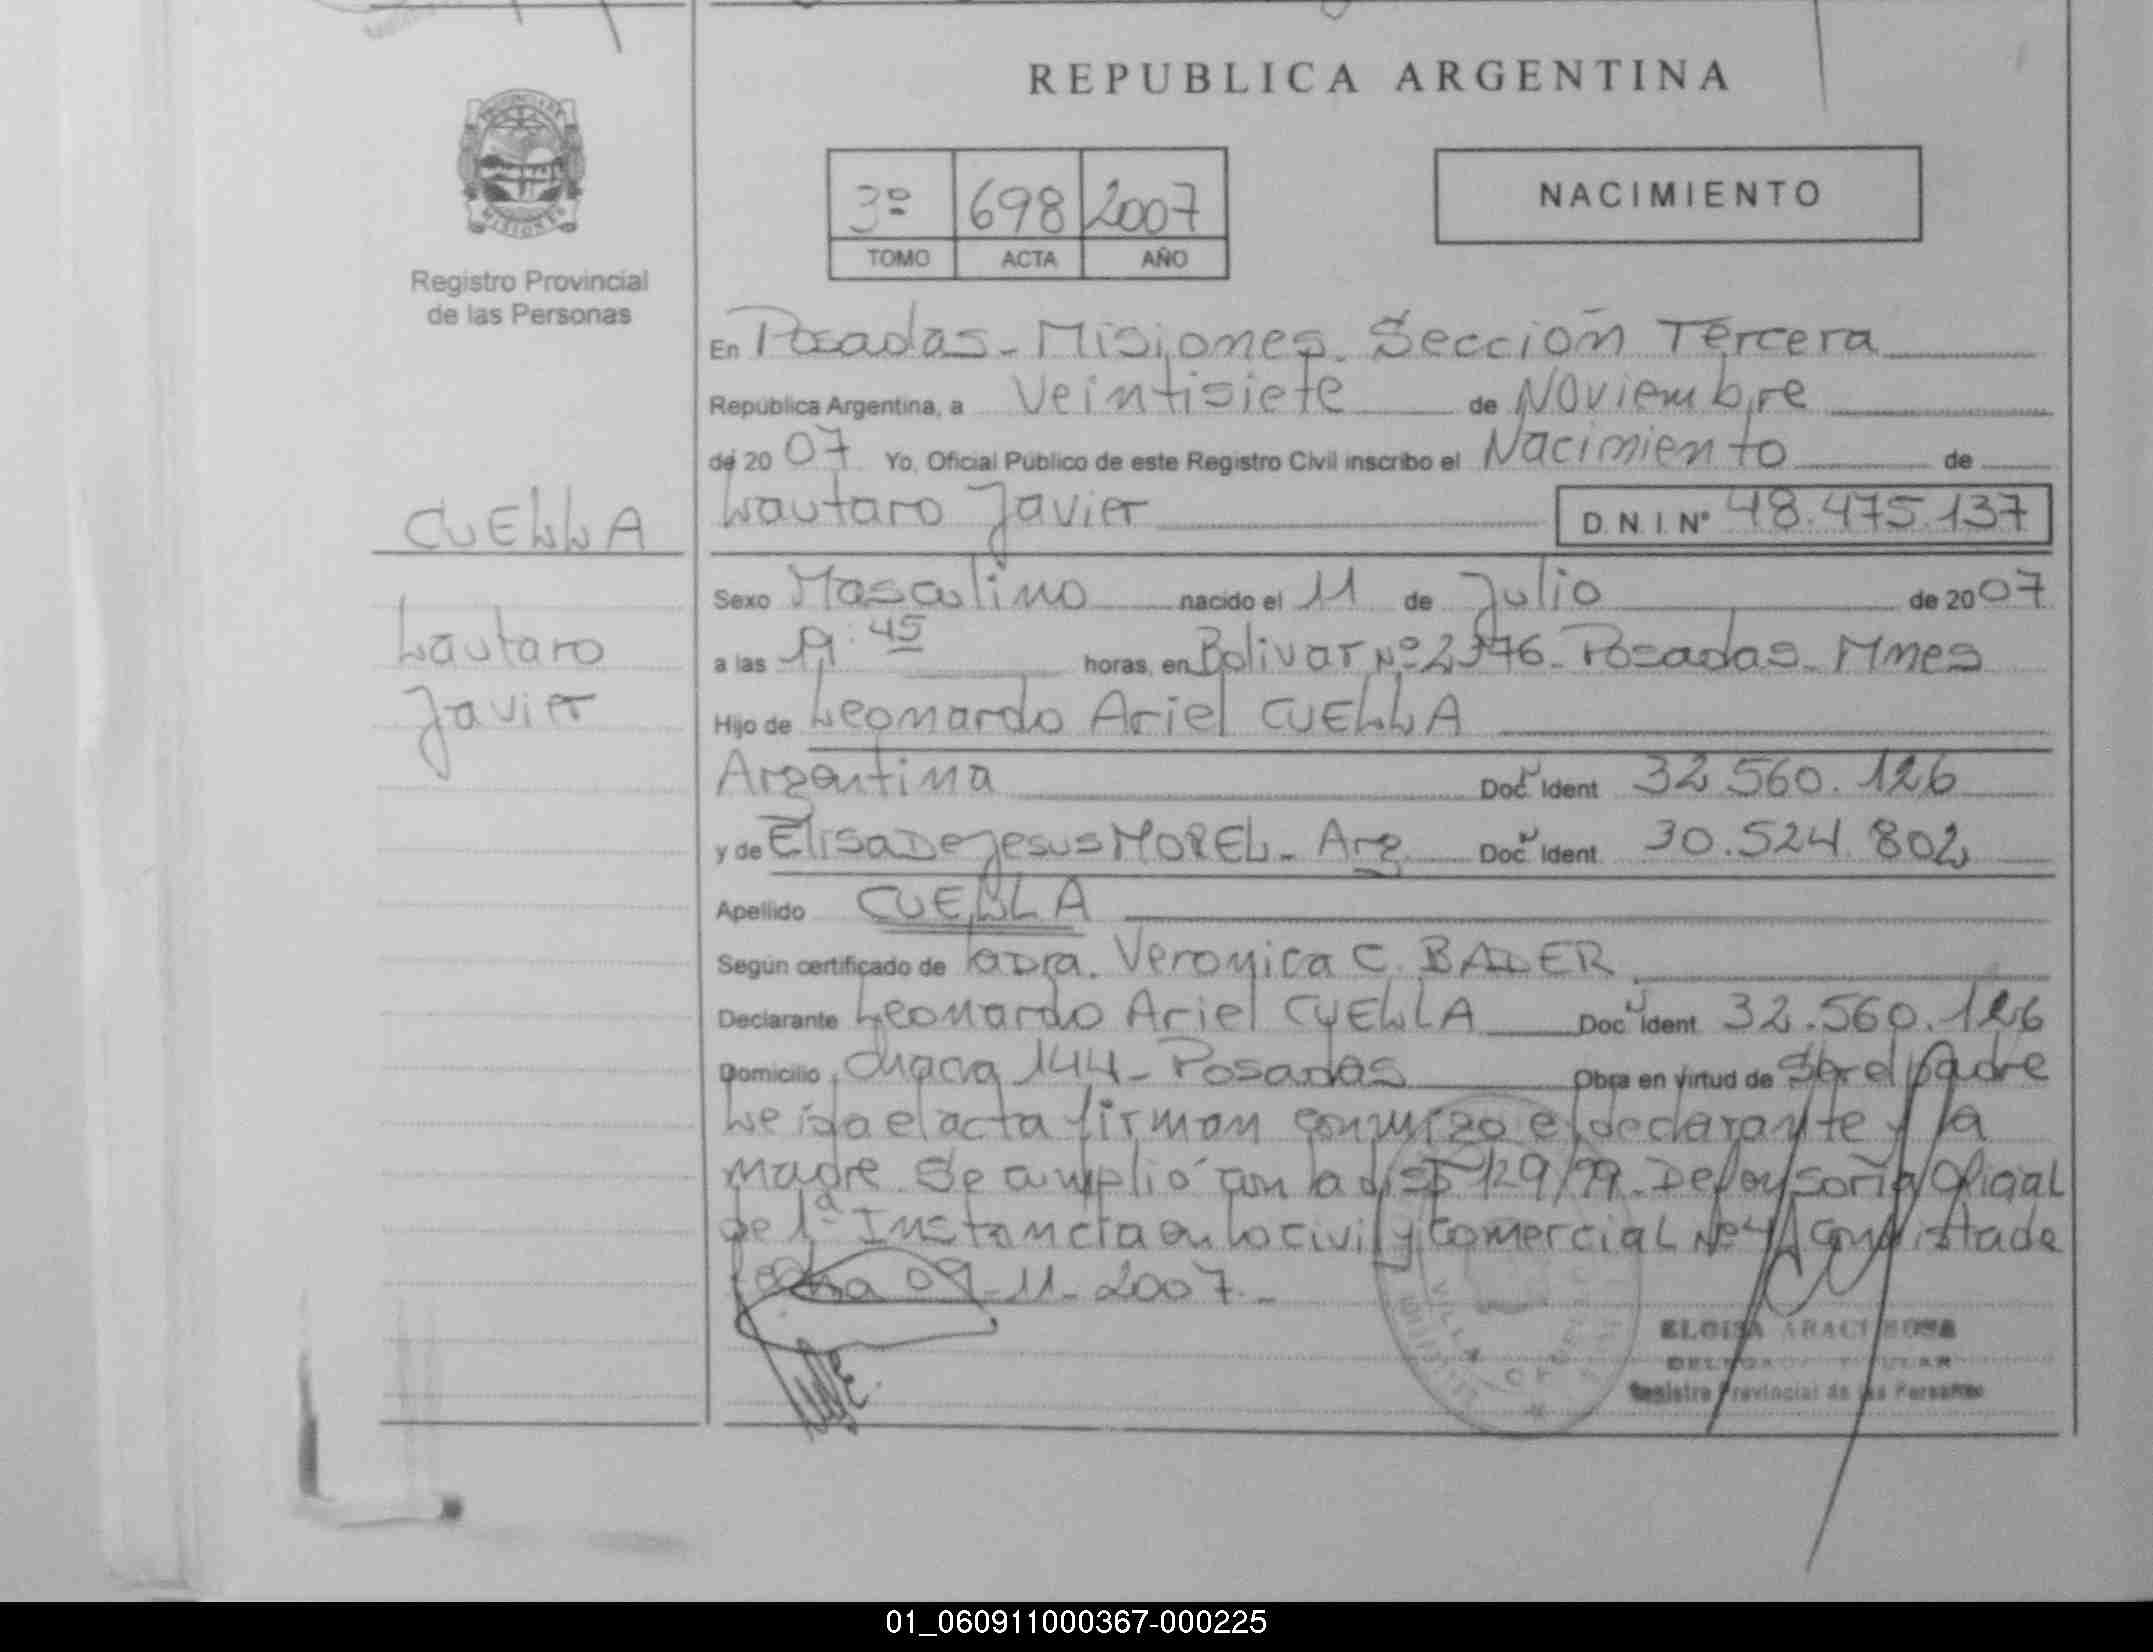 REPUBLICA ARGENTINA
3º 698 2007
TOMO ACTA AÑO
NACIMIENTO
Registro Provincial
de las Personas
CUELLA
Lautaro
Javier
En Posadas - Misiones. Sección Tercera
República Argentina, a Veintisiete de Noviembre
de 20 07 Yo, Oficial Público de este Registro Civil inscribo el Nacimiento de
Lautaro Javier D.N.I. Nº 48.475.137
Sexo Masculino nacido el 11 de Julio de 20 07
a las :45 horas, en Bolivar Nº Posadas - Mnes
Hijo de Leonardo Ariel CUELLA
Argentina Doc. Ident 32.560.126
y de Elisa De Jesus MOREL - Arg Doc. Ident. 30.524.802
Apellido CUELLA
Según certificado de la Dra. Veronica C. BADER
Declarante Leonardo Ariel CUELLA Doc Ident 32.560.126
Domicilio Chacra 144 - Posadas Obra en virtud de Ser el padre
Leida el acta firman conmigo el declarante y la
madre. Se cumplió con la disp 129/99. Defensoria Oficial
de 1ª Instancia en lo civil y comercial Nº 4
fecha 09-11-2007.-
ELOISA
Registro Provincial de las Personas
01_060911000367-000225